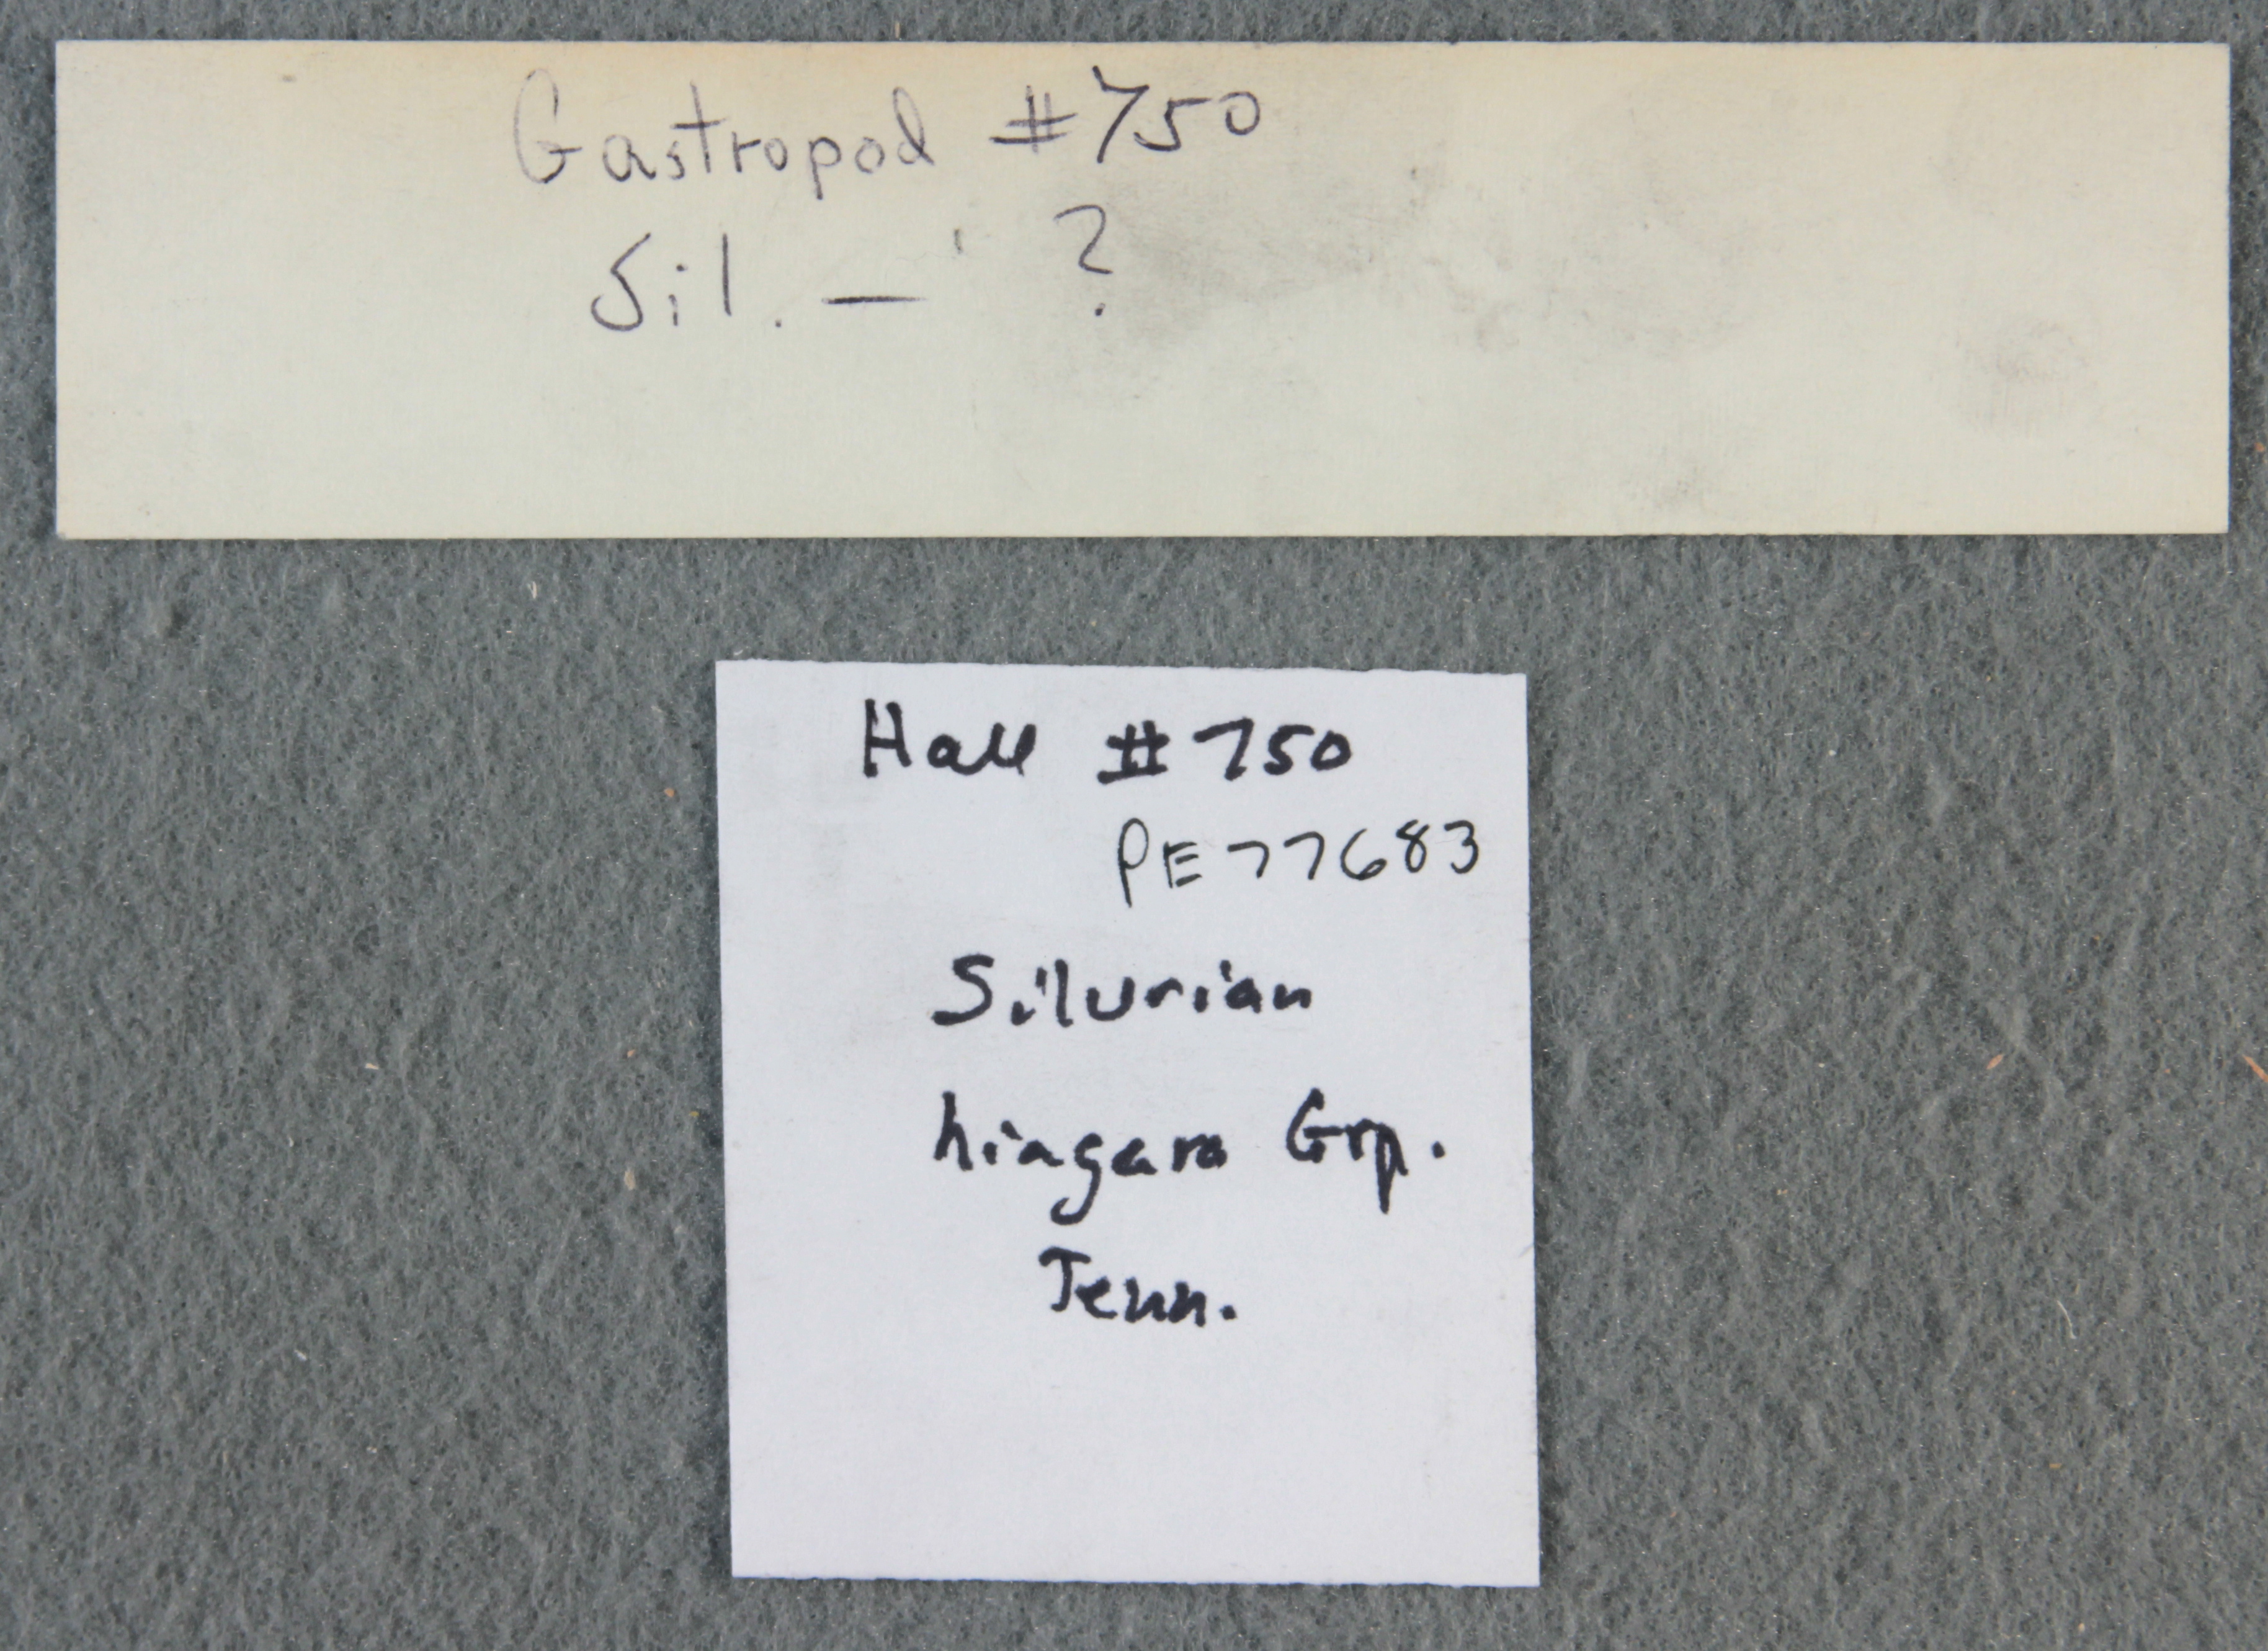 Gastropod #750
Sil. — ?
Hall #750
PE77683
Silurian
Niagara Grp.
Tenn.